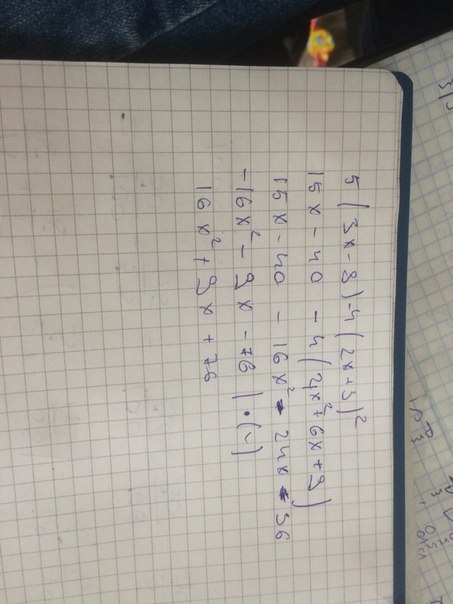 5(3x-8)-4(2x+3)²
15x-40-4(4x²+6x+9)
15x-40-16x²-24x-36
-16x²-9x-76 | ·(-1)
16x²+9x+76